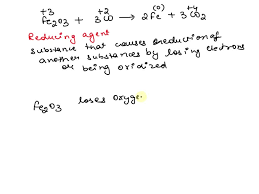 +3 +2 (0) +4
Fe2O3 + 3CO → 2Fe + 3CO2
Reducing agent
substance that causes reduction of
another substances by losing electrons
or being oxidized
Fe2O3 loses oxyge